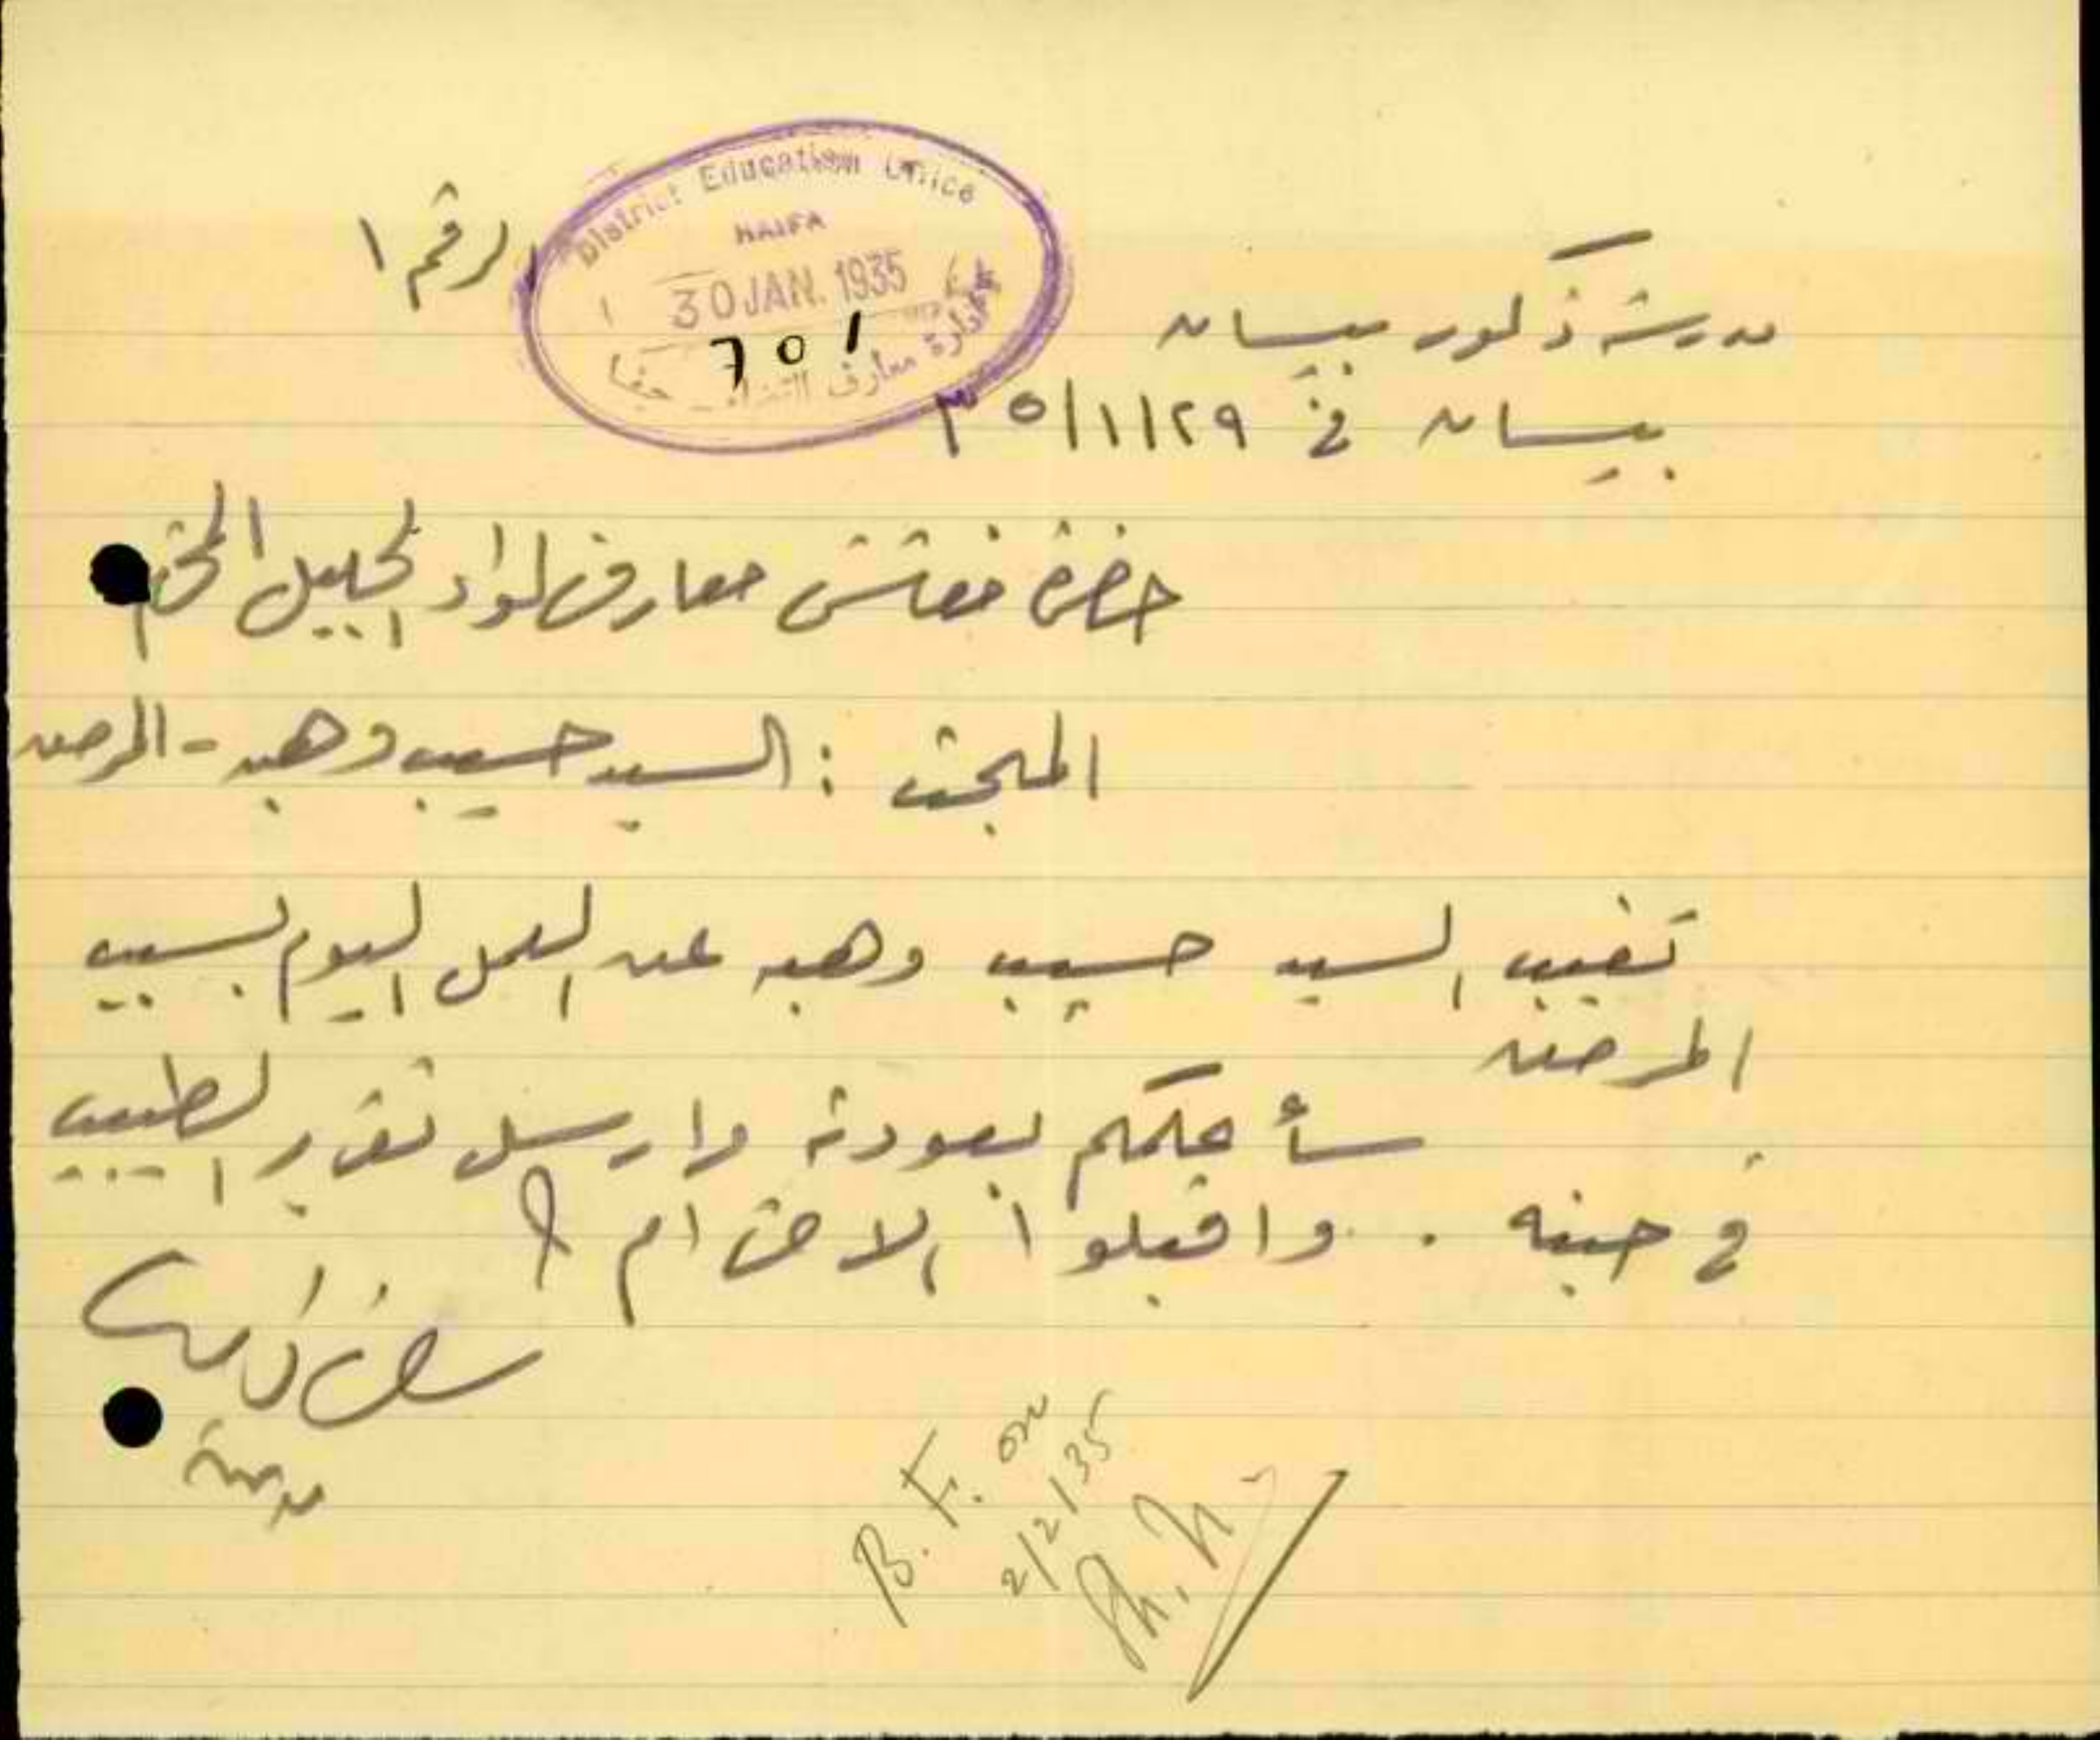 الرقم ١
District Education Office
HAIFA
30 JAN. 1935
701
ادارة معارف القضاء - حيفا
مدرسة ذكور بيسان
بيسان في ٢٩/١/٣٥
حضرة مفتش معارف لواء الجليل المحترم
المبحث : السيد حسيب وهبه - المرض
تغيب السيد حسيب وهبه عن العمل اليوم بسبب
المرض
سأعلمكم بعودته وارسل تقرير الطبيب
في حينه . واقبلوا الاحترام
B. F. on
2/2/35